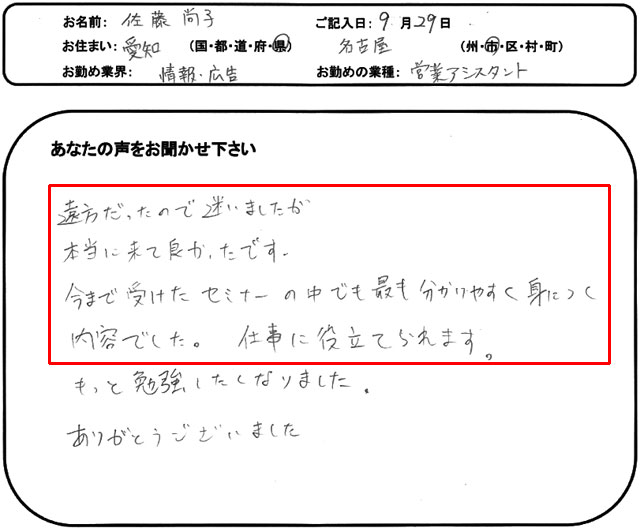 お名前: 佐藤 尚子 ご記入日: 9 月 29 日
お住まい: 愛知 (国・都・道・府・県) 名古屋 (州・市・区・村・町)
お勤め業界: 情報・広告 お勤めの業種: 営業アシスタント
あなたの声をお聞かせ下さい
遠方だったので迷いましたが
本当に来て良かったです。
今まで受けたセミナーの中でも最も分かりやすく身につく
内容でした。 仕事に役立てられます。
もっと勉強したくなりました。
ありがとうございました